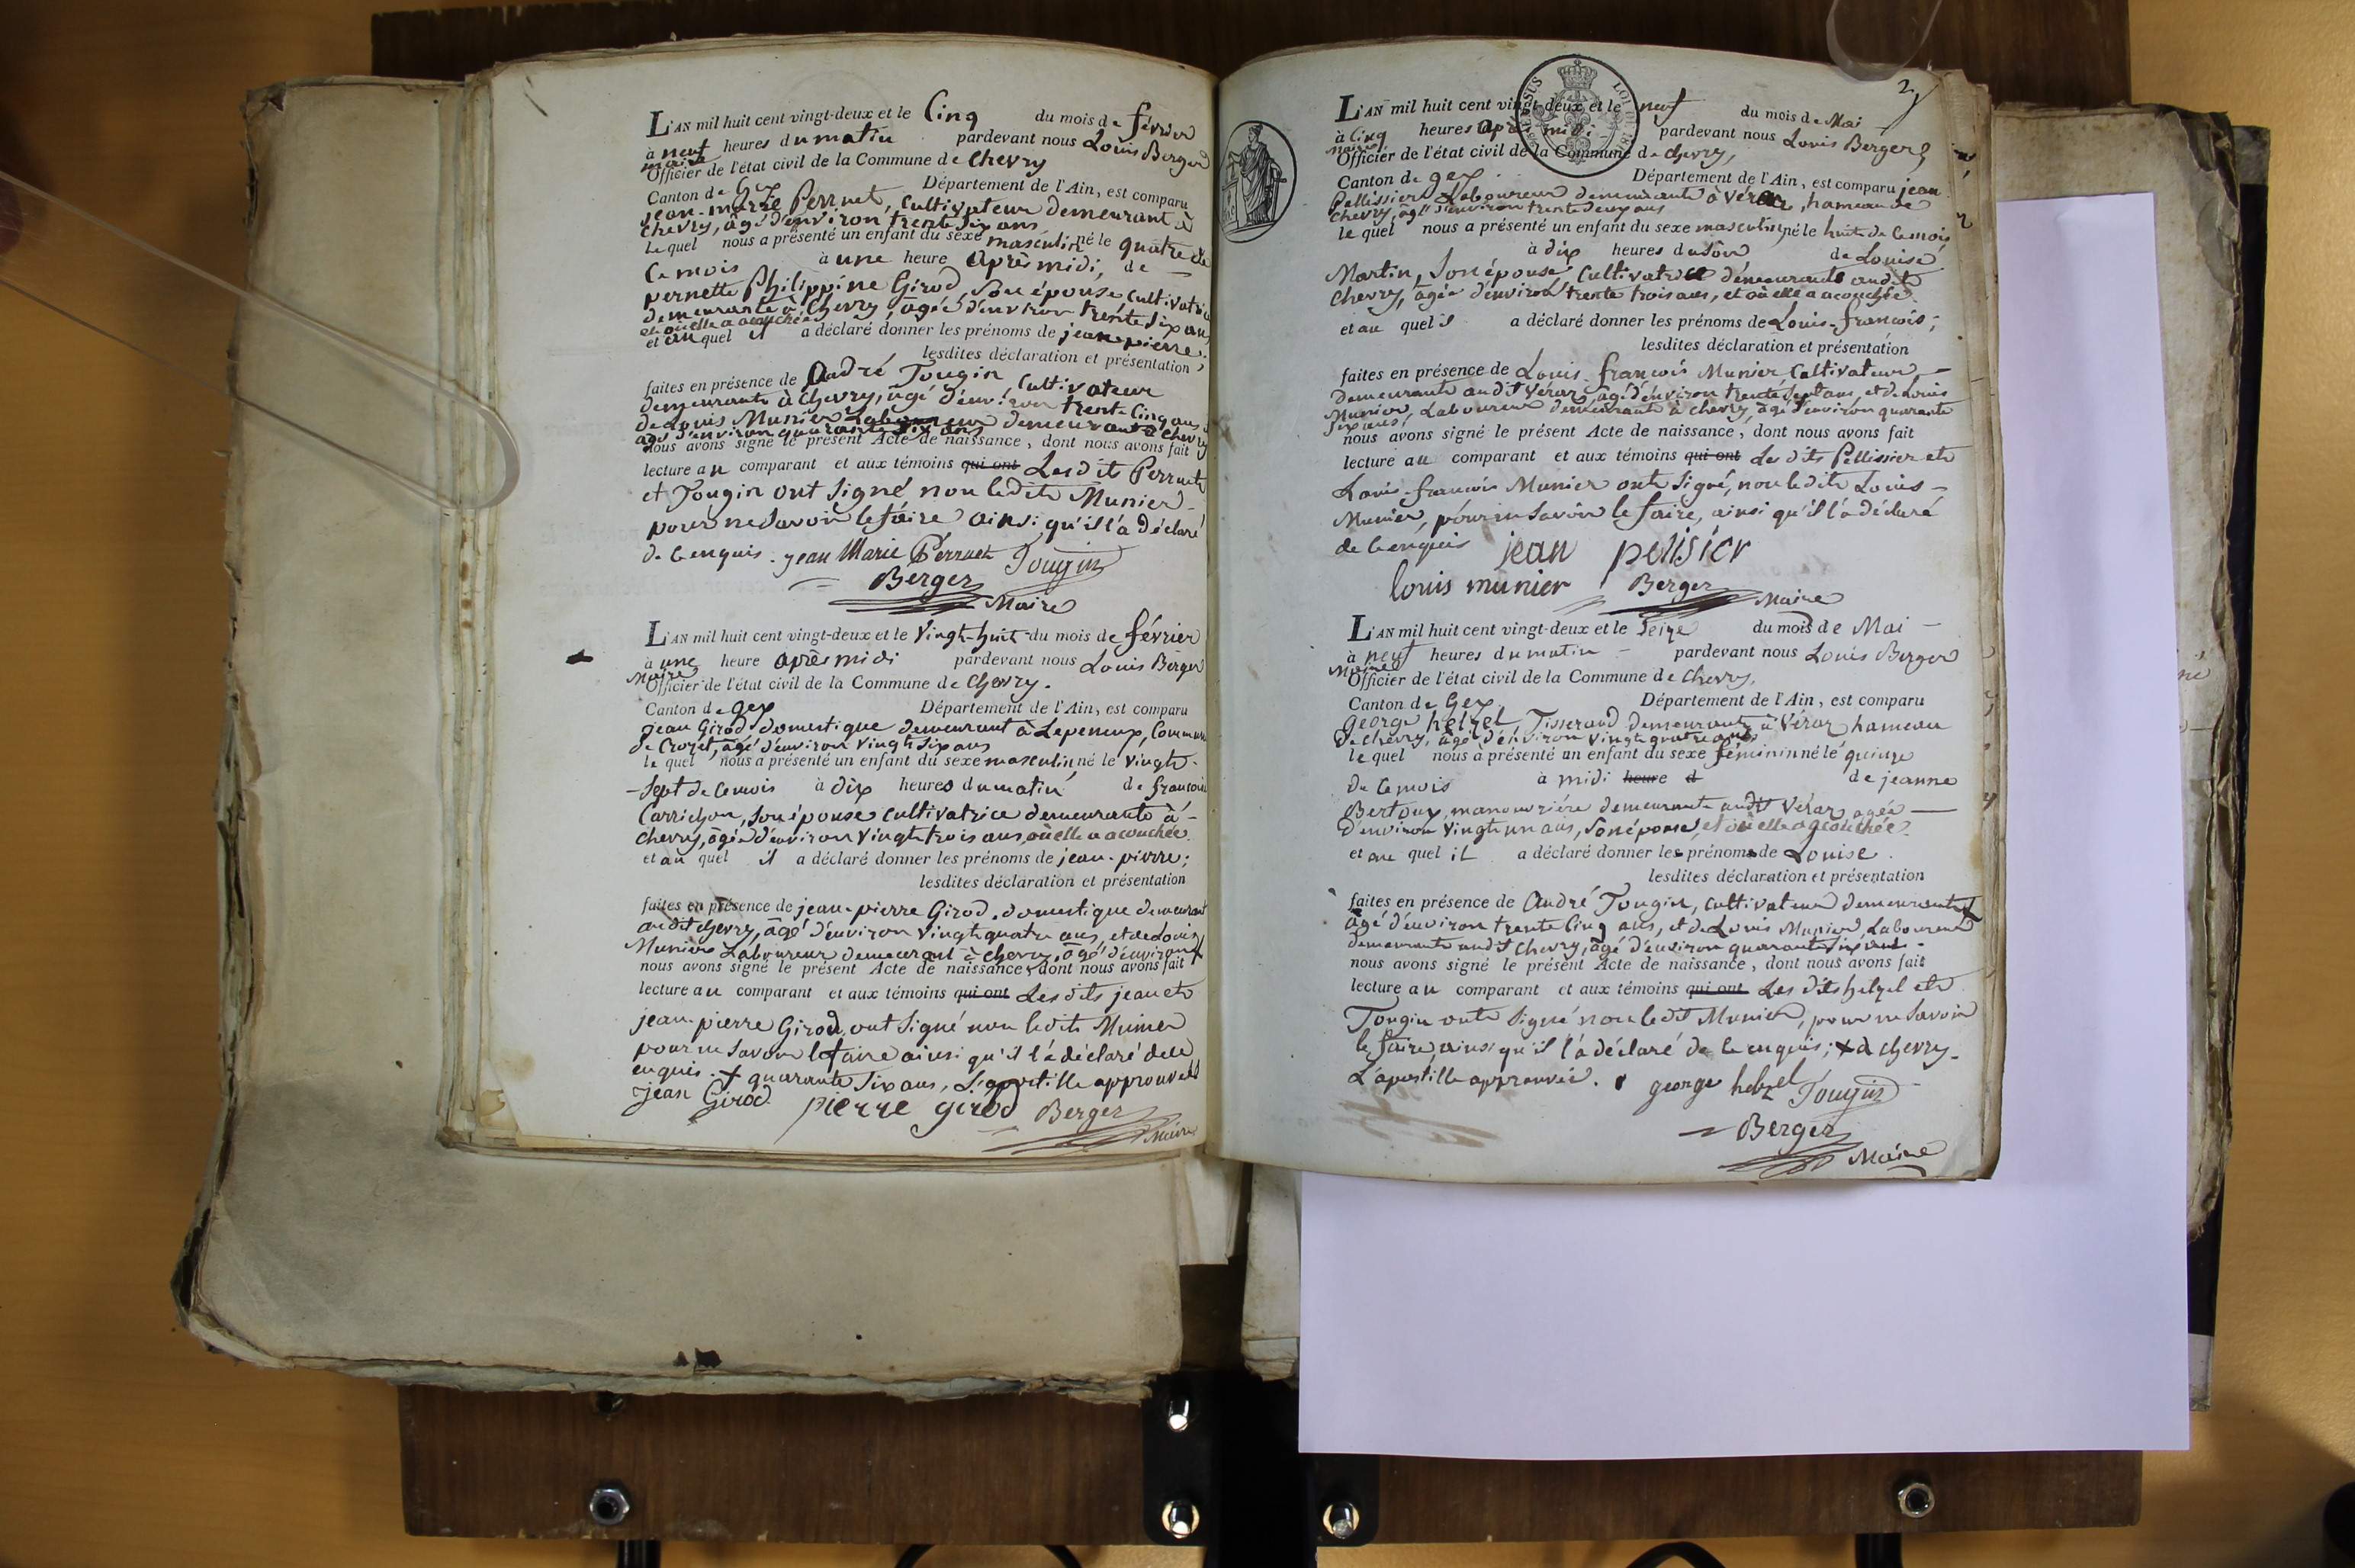 L'AN mil huit cent vingt-deux et le Cinq du mois de février
à neuf heures du matin pardevant nous Louis Berger
maire
Officier de l'état civil de la Commune de Chevry
Canton de Gex Département de l'Ain, est comparu
jean-marie Perruet, Cultivateur demeurant à
Chevry, âgé d'environ trente six ans
le quel nous a présenté un enfant du sexe masculin né le quatre de
Ce mois à une heure Après midi, de
pernette Philippine Girod, Son épouse Cultivatrice
demeurante à Chevry, âgée d'environ trente six ans
et où elle a acouchée
et au quel il a déclaré donner les prénoms de jean pierre;
lesdites déclaration et présentation
faites en présence de André Tougin, Cultivateur
demeurante à Chevry, âgé d'environ trente Cinq ans, et
de Louis Munier Laboureur demeurant à Chevry
âgé d'environ quarante Six ans
nous avons signé le présent Acte de naissance, dont nous avons fait
lecture au comparant et aux témoins qui ont Lesdits Perruet
et Tougin ont Signé non ledit Munier
pour ne Savoir le faire ainsi qu'il l'a déclaré
de Ce enquis. jean Marie Perruet Tougin
Berger
Maire
L'AN mil huit cent vingt-deux et le Vingt-huit du mois de février
à une heure Après midi pardevant nous Louis Berger
Maire
Officier de l'état civil de la Commune de Chevry.
Canton de Gex Département de l'Ain, est comparu
jean Girod, domestique demeurant à Lepeneux, Commune
de Crozet, âgé d'environ vingt Six ans
le quel nous a présenté un enfant du sexe masculin, né le Vingt-
Sept de Ce mois à dix heures du matin de francoise
Carrichon, Son épouse Cultivatrice demeurante à
Chevry, âgée d'environ Vingt trois ans, où elle a acouchée
et au quel il a déclaré donner les prénoms de jean-pierre;
lesdites déclaration et présentation
faites en présence de jean-pierre Girod, domestique demeurant
audit Chevry, âgé d'environ Vingt quatre ans, et de Louis
Munier Laboureur demeurant à Chevry, âgé d'environ X
nous avons signé le présent Acte de naissance, dont nous avons fait
lecture au comparant et aux témoins qui ont Lesdits jean et
jean-pierre Girod, ont Signé non ledit Munier
pour ne Savoir le faire ainsi qu'il l'a déclaré de Ce
enquis. X quarante Six ans, L'apostille approuvée
jean Girod pierre girod Berger
Maire
2
L'AN mil huit cent vingt-deux et le neuf du mois de Mai
à Cinq heures Après midi pardevant nous Louis Berger,
Maire
Officier de l'état civil de la Commune de Chevry,
Canton de gex Département de l'Ain, est comparu jean
Pellissier Laboureur demeurante à Véraz, hameau de
Chevry, âgé d'environ trente deux ans
le quel nous a présenté un enfant du sexe masculin, né le huit de Ce mois
à dix heures du Soir, de Louise
Martin, Son épouse Cultivatrice demeurante audit
Chevry, âgée d'environ trente trois ans, et où elle a acouchée.
et au quel il a déclaré donner les prénoms de Louis-francois;
lesdites déclaration et présentation
faites en présence de Louis francois Munier Cultivateur
demeurante audit Véraz, âgé d'environ trente Sept ans, et de Louis
Munier, Laboureur demeurante à Chevry, âgé d'environ quarante
Six ans,
nous avons signé le présent Acte de naissance, dont nous avons fait
lecture au comparant et aux témoins qui ont Lesdits Pellissier et
Louis-francois Munier ont Signé, non ledit Louis
Munier, pour ne Savoir le faire, ainsi qu'il l'a déclaré
de Ce enquis jean pelisier
louis munier Berger
Maire
L'AN mil huit cent vingt-deux et le Seize du mois de Mai
à neuf heures du matin pardevant nous Louis Berger
Maire
Officier de l'état civil de la Commune de Chevry,
Canton de Gex Département de l'Ain, est comparu
George helzel, Tisserand demeurante à Véraz hameau
de Chevry, âgé d'environ vingt quatre ans
le quel nous a présenté un enfant du sexe féminin né le quinze
de Ce mois à midi heure d de jeanne
Bertoux, manouvrière demeurante audit Véraz, agée
d'environ Vingt un ans, Son épouse, et où elle a acouchée.
et au quel il a déclaré donner les prénoms de Louise.
lesdites déclaration et présentation
faites en présence de André Tougin, Cultivateur demeurante X
âgé d'environ trente Cinq ans, et de Louis Munier, Laboureur
demeurante audit Chevry, âgé d'environ quarante Six ans.
nous avons signé le présent Acte de naissance, dont nous avons fait
lecture au comparant et aux témoins qui ont Les dits helzel et
Tougin ont Signé non ledit Munier, pour ne Savoir
le faire, ainsi qu'il l'a déclaré de Ce enquis; X à Chevry.
L'apostille approuvée. george helzel Tougin
Berger
Maire